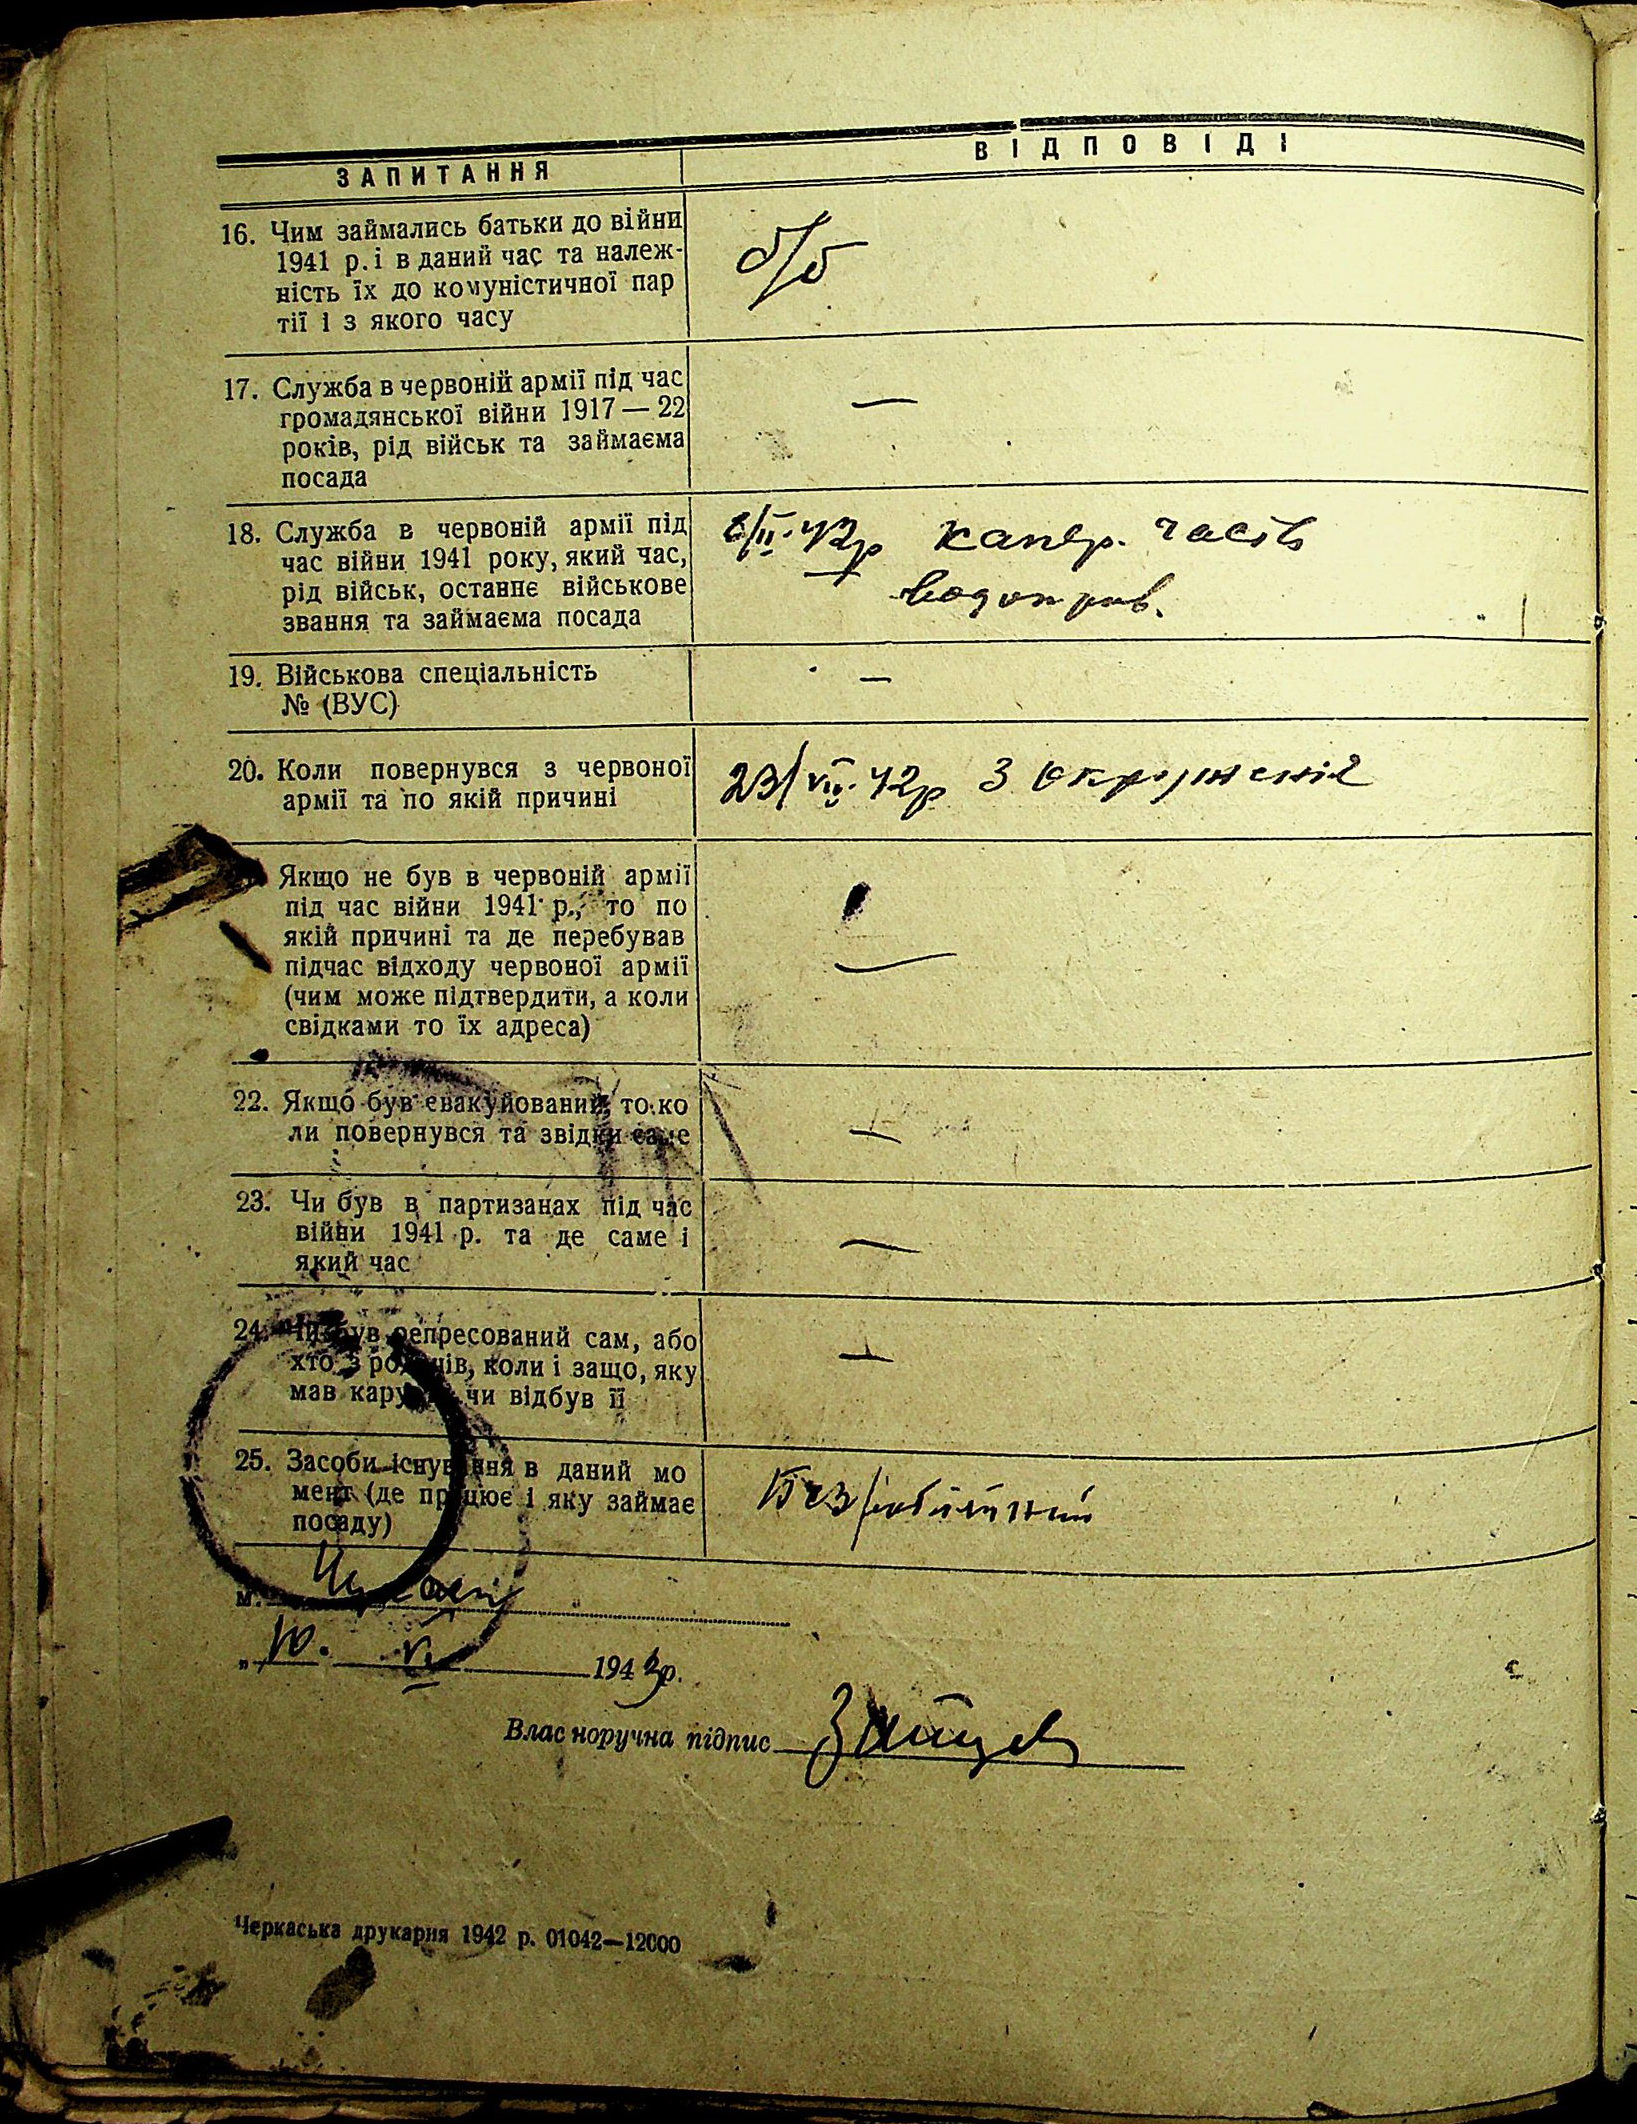 ЗАПИТАННЯ
ВІДПОВІДІ
16. Чим займались батьки до війни
1941 р. і в даний час та належ-
ність їх до комуністичної пар
тії і з якого часу
б/б
17. Служба в червоній армії під час
громадянської війни 1917 — 22
років, рід військ та займаєма
посада
—
18. Служба в червоній армії під
час війни 1941 року, який час,
рід військ, останнє військове
звання та займаєма посада
/II. 42р часть
19. Військова спеціальність
№ (ВУС)
—
20. Коли повернувся з червоної
армії та по якій причині
23/VII. 42р З окруженія
Якщо не був в червоній армії
під час війни 1941 р., то по
якій причині та де перебував
підчас відходу червоної армії
(чим може підтвердити, а коли
свідками то їх адреса)
—
22. Якщо був евакуйований, то ко
ли повернувся та звідки саме
—
23. Чи був в партизанах під час
війни 1941 р. та де саме і
який час
—
24. Чи був репресований сам, або
хто з родичів, коли і защо, яку
мав кару чи відбув її
—
25. Засоби існування в даний мо
мент (де працює і яку займає
посаду)
м. Черкаси
„ 10. VI 1943р.
Власноручна підпис Зайцев
Черкаська друкарня 1942 р. 01042—12000